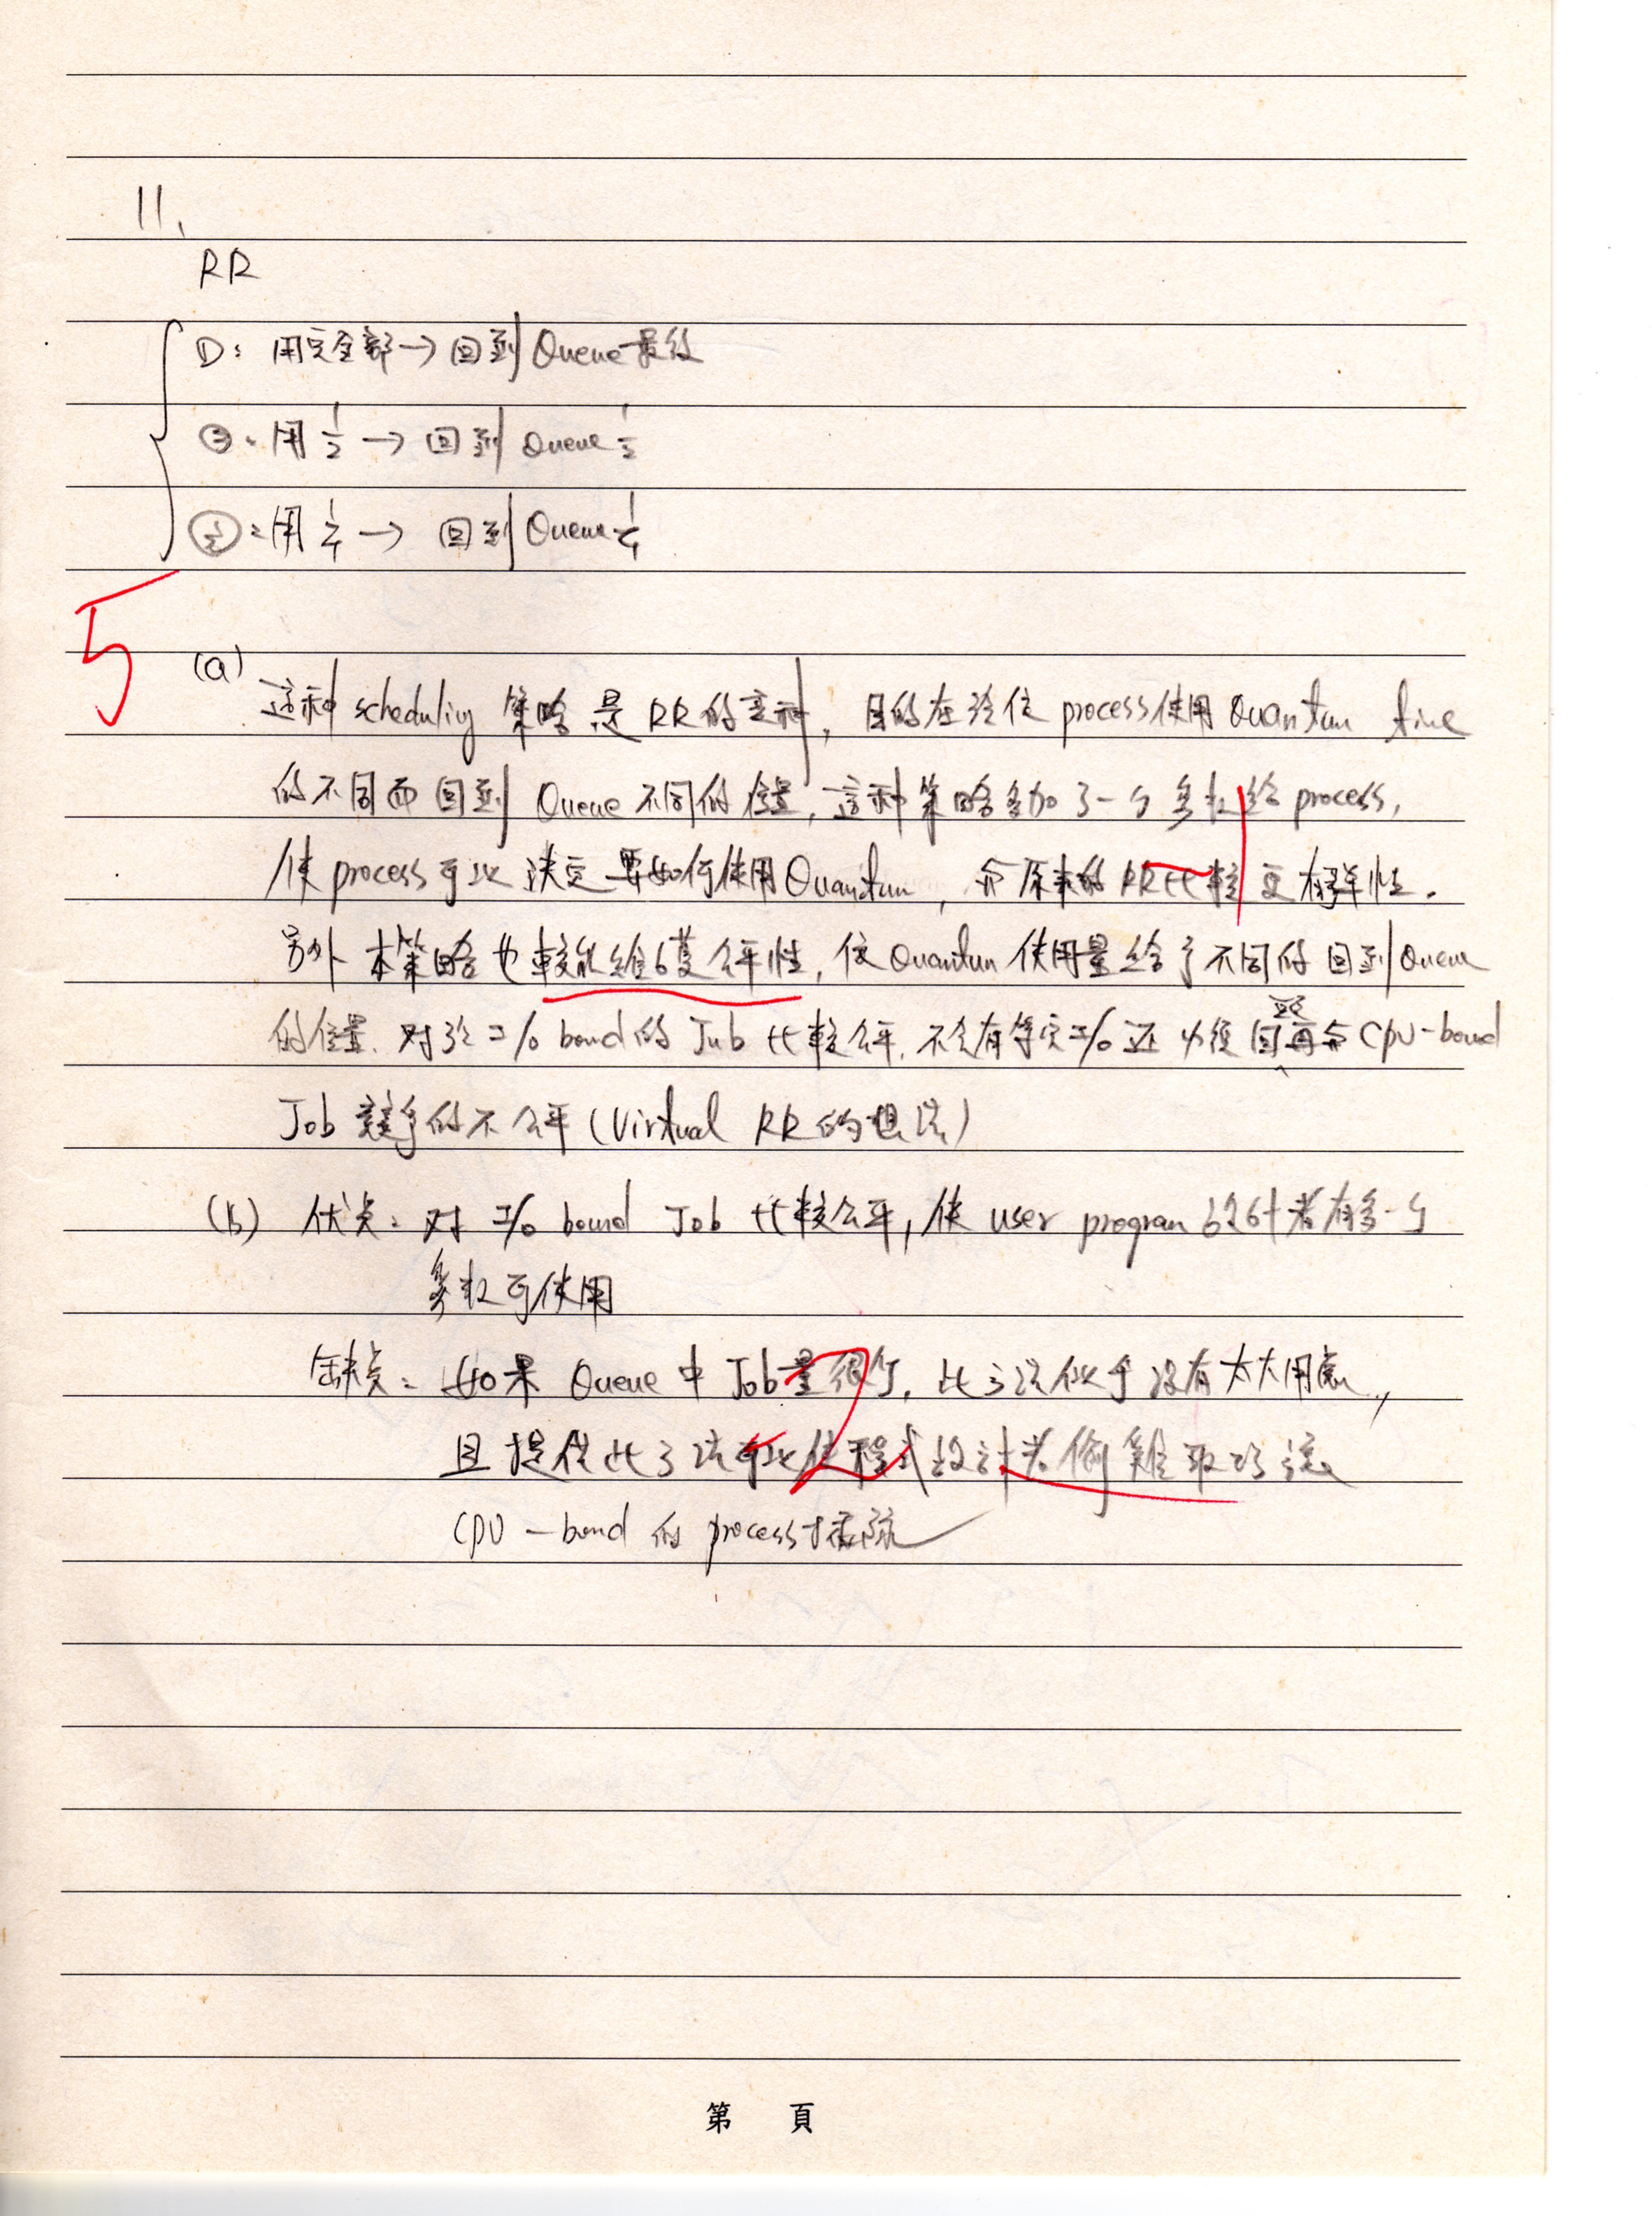 11、
RR
①: 用完全部 → 回到 Queue 最後
②: 用 1/2 → 回到 Queue 1/2
③: 用 1/4 → 回到 Queue 1/4
5
(a)
這种 scheduling 策略是 RR 的变种, 目的在於依 process 使用 Quantun time
的不同而回到 Queue 不同的位置, 這种策略多加了一个参数給 process,
使 process 可以決定要如何使用 Quantun, 与原來的 RR 比較更有弹性.
另外本策略也較能維護公平性, 依 Quantun 使用量給予不同的回到 Queue
的位置. 对於 I/O bound 的 Job 比較公平, 不会有等完 I/O 还必須回 再与 CPU-bound
Job 競爭的不公平 (Virtual RR 的想法)
(b) 优点: 对 I/O bound Job 比較公平, 使 user program 設計者有多一个
参数可使用
缺点: 如果 Queue 中 Job 量很少, 此方法似乎沒有太大用處,
且提供此方法可以使程式設計者偷雞取巧讓
CPU-bound 的 process
第 頁